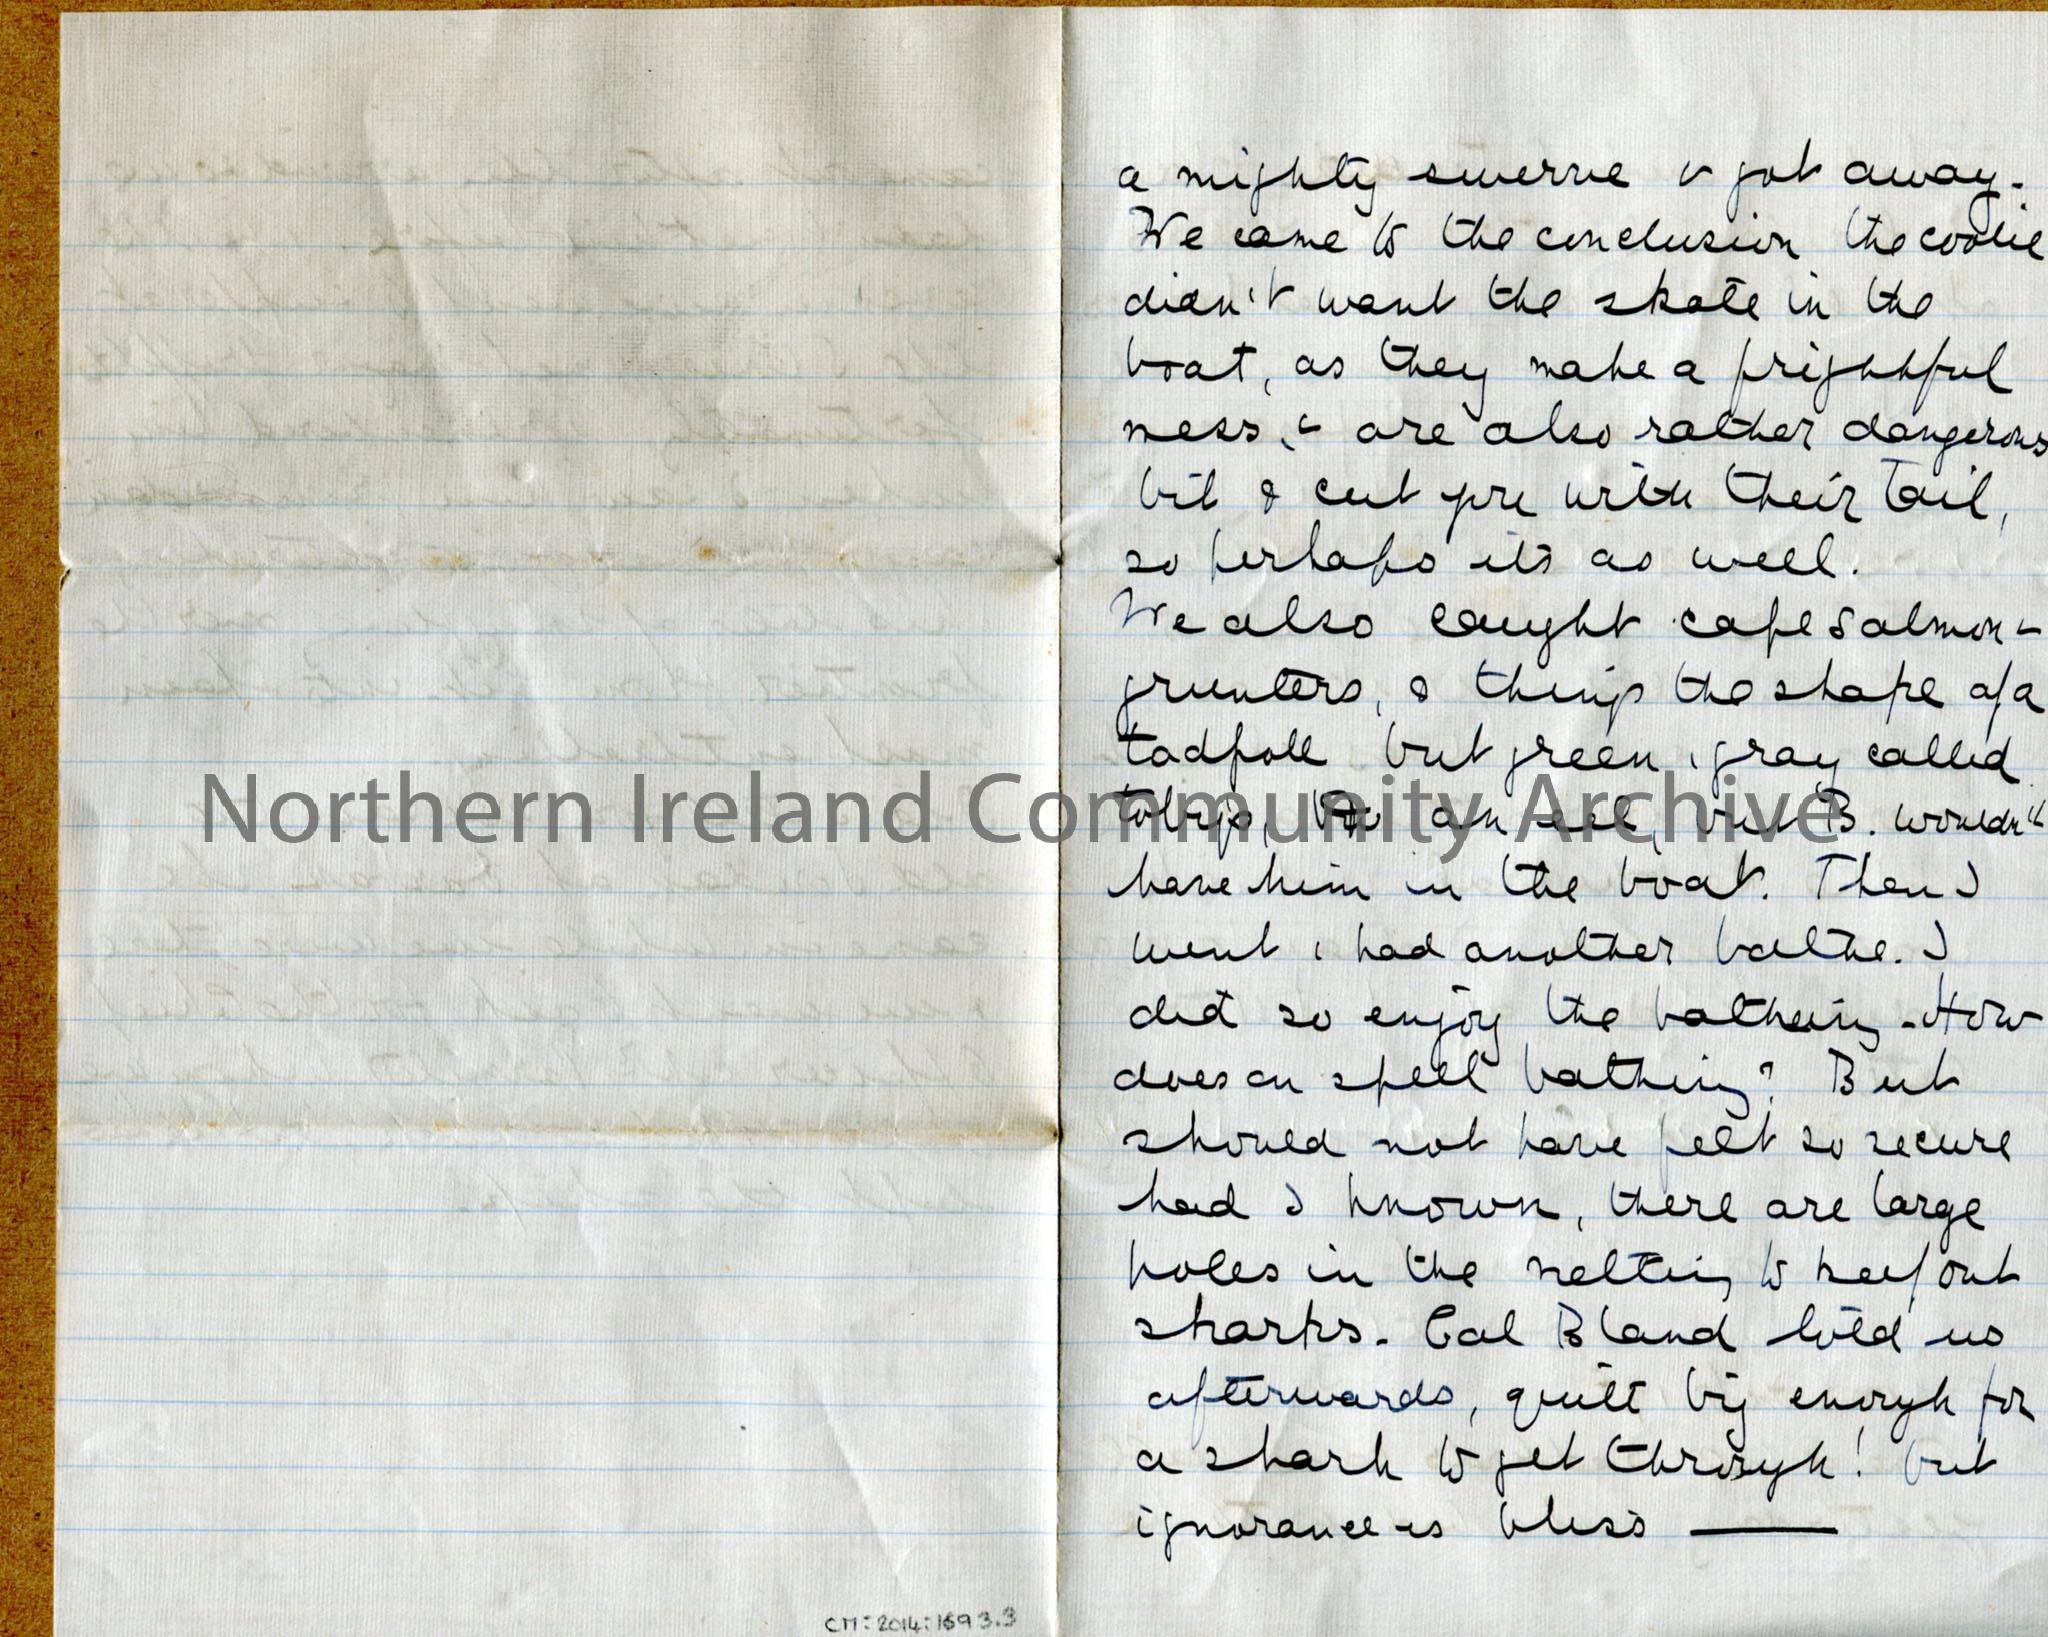 a mighty swerve & got away.
We came to the conclusion the coolie
didn't want the skate in the
boat, as they make a frightful
mess, & are also rather dangerous
bit & cut you with their tail,
so perhaps it's as well.
We also caught cape salmon &
grunters, & things the shape of a
tadpole but green & gray called
tobys, an eel, but B. wouldn't
have him in the boat. Then I
went & had another bathe. I
did so enjoy the batheing - How
does on spell bathing? But
should not have felt so secure
had I known, there are large
holes in the netting to keep out
sharks. Cal Bland told us
afterwards, quite big enough for
a shark to get through! but
ignorance is bliss ———
Northern Ireland Community Archive
CM:2014:1693.3